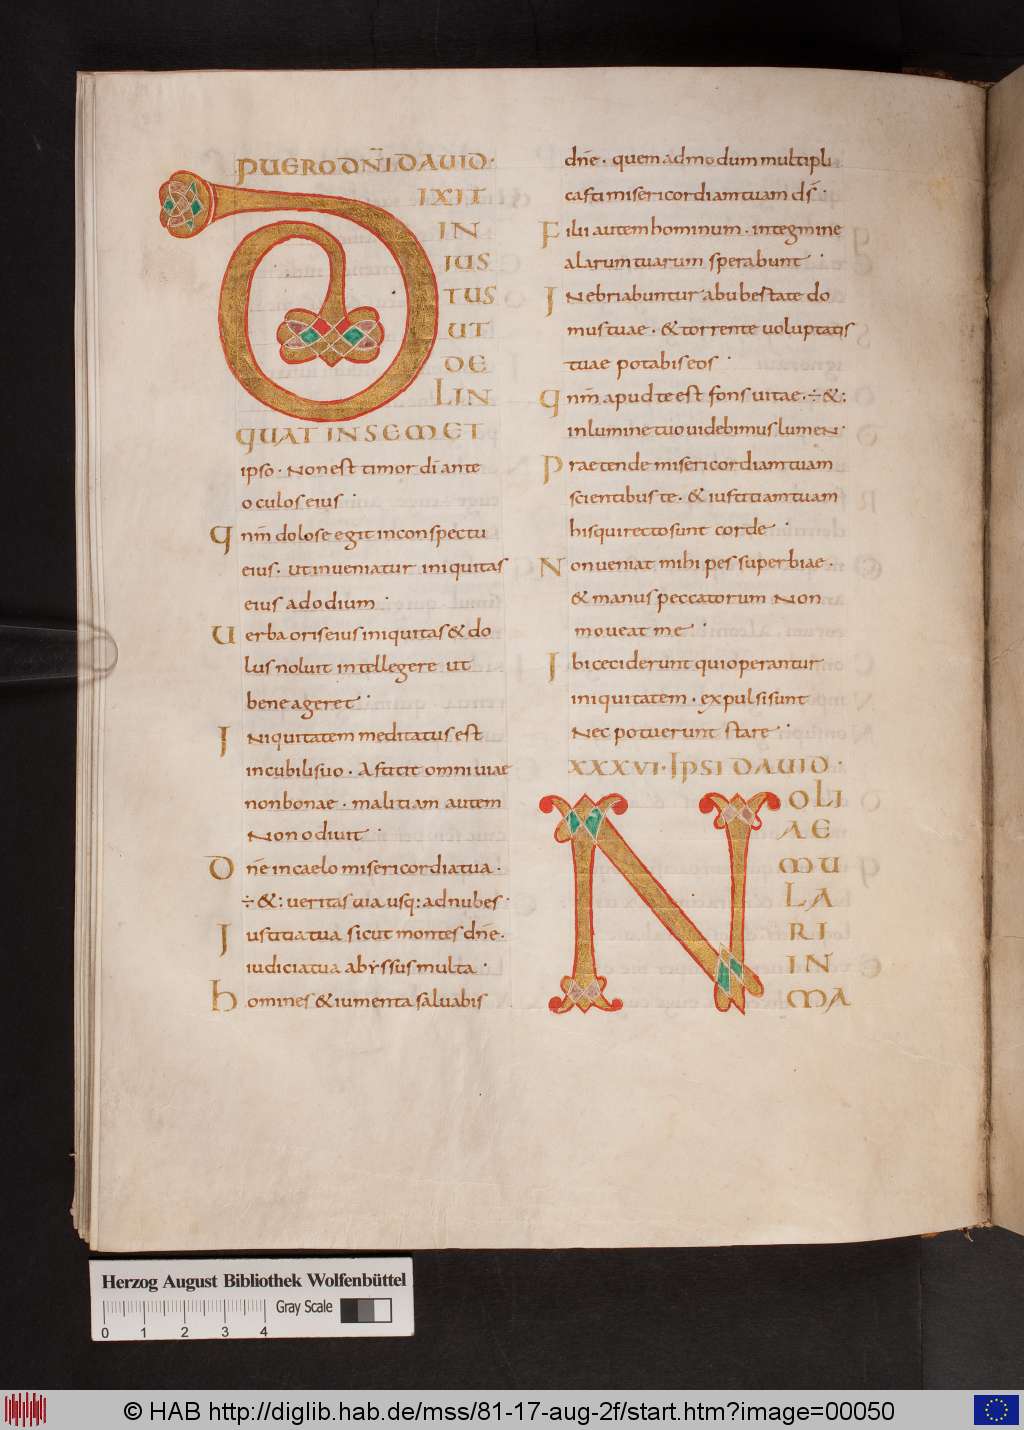 PUERO DNĪ DAVID·
DIXIT
IN
JUS
TUS
UT
DE
LIN
QUAT IN SEMET
ipso · Non est timor dī ante
oculos eius ·
qnm̄ dolose egit in conspectu
eius · ut inveniatur iniquitas
eius ad odium ·
Verba oris eius iniquitas & do
lus noluit intellegere ut
bene ageret ·
INiquitatem meditatus est
in cubili suo · Astitit omni viae
non bonae · malitiam autem
Non odivit ·
Dnē in caelo misericordia tua ·
÷ &: veritas tua usq: ad nubes ·
Justitia tua sicut montes dnē ·
iudicia tua abyssus multa ·
homines & iumenta salvabis
dnē · quemadmodum multipli
casti misericordiam tuam ds̄ ·
Filii autem hominum · in tegmine
alarum tuarum sperabunt ·
INebriabuntur ab ubertate do
mus tuae · & torrente voluptatis
tuae potabis eos ·
qnm̄ apud te est fons vitae · ÷ &:
in lumine tuo videbimus lumeN ·
Praetende misericordiam tuam
scientibus te · & iustitiam tuam
his qui recto sunt corde ·
Non veniat mihi pes superbiae ·
& manus peccatorum Non
moveat me ·
Ibi ceciderunt qui operantur
iniquitatem · expulsi sunt
Nec potuerunt stare ·
XXXVI · IPSI DAVID ·
NOLI
AE
MU
LA
RI
IN
MA
Herzog August Bibliothek Wolfenbüttel
Gray Scale
0 1 2 3 4
© HAB http://diglib.hab.de/mss/81-17-aug-2f/start.htm?image=00050